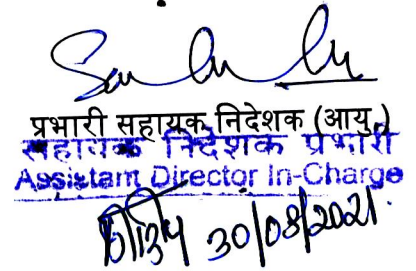 प्रभारी सहायक निदेशक (आयु.)
सहायक निदेशक प्रभारी
Assistant Director In-Charge
30/08/2021